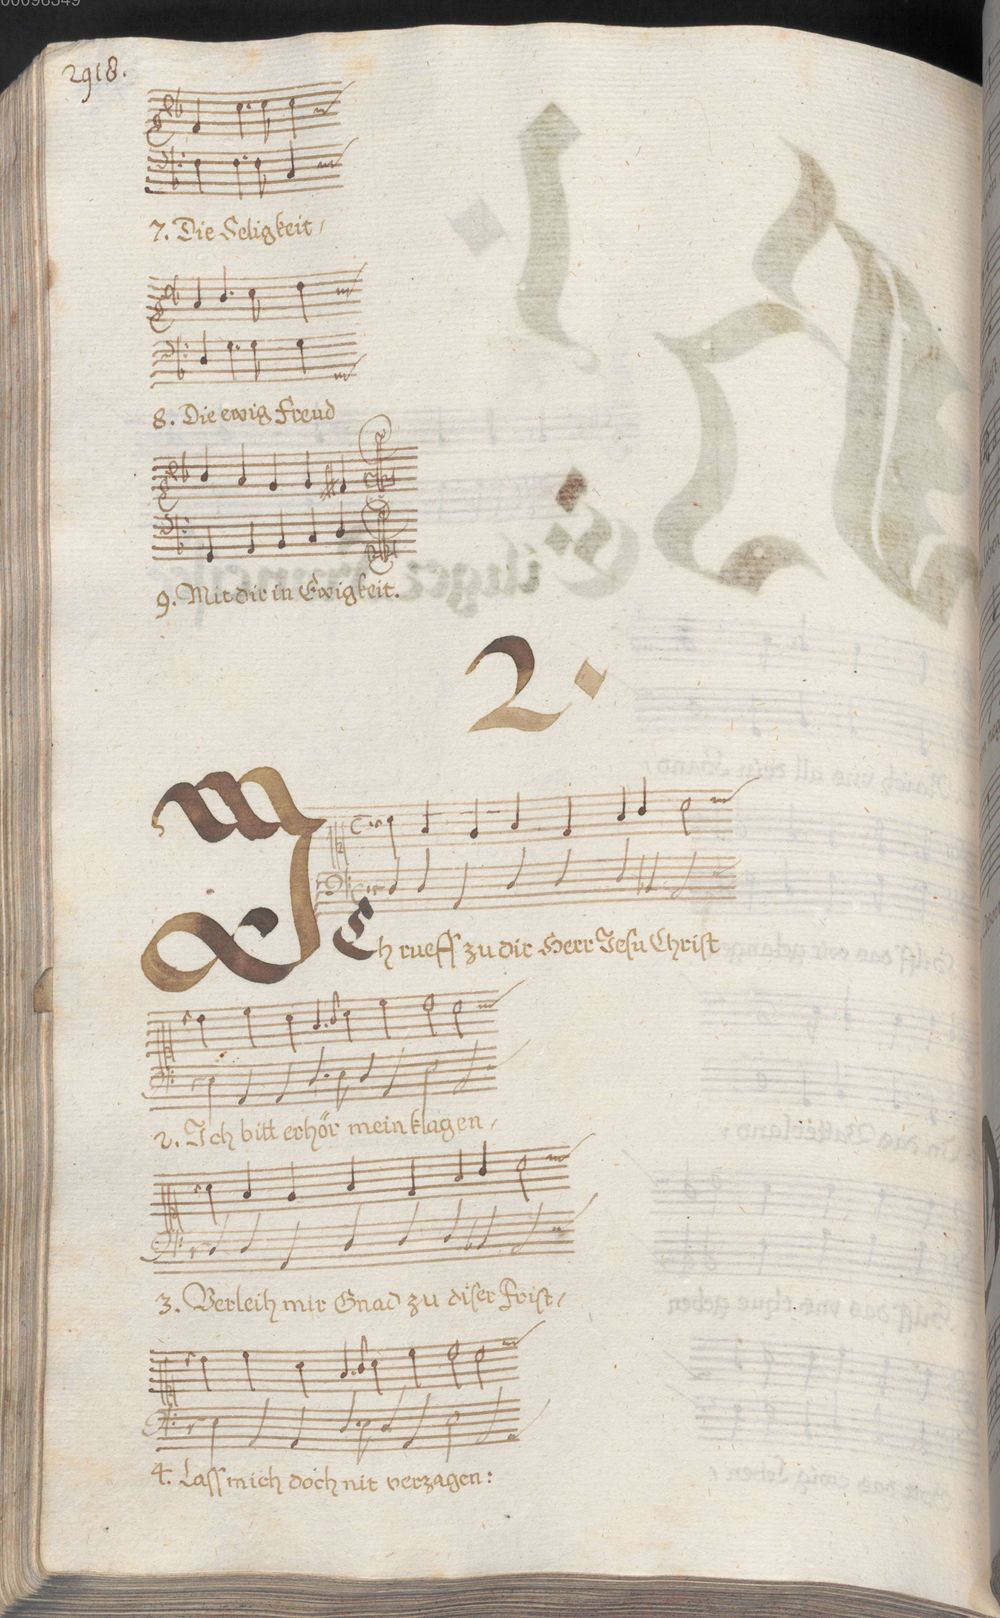 2918.
7. Die Seligkeit,
8. Die ewig Freud
9. Mit dir in Ewigkeit.
2.
ICh rueff zu dir Herr Jesu Christ
2. Ich bitt erhör mein klagen,
3. Verleih mir Gnad zu diser Frist,
4. Lass mich doch nit verzagen: